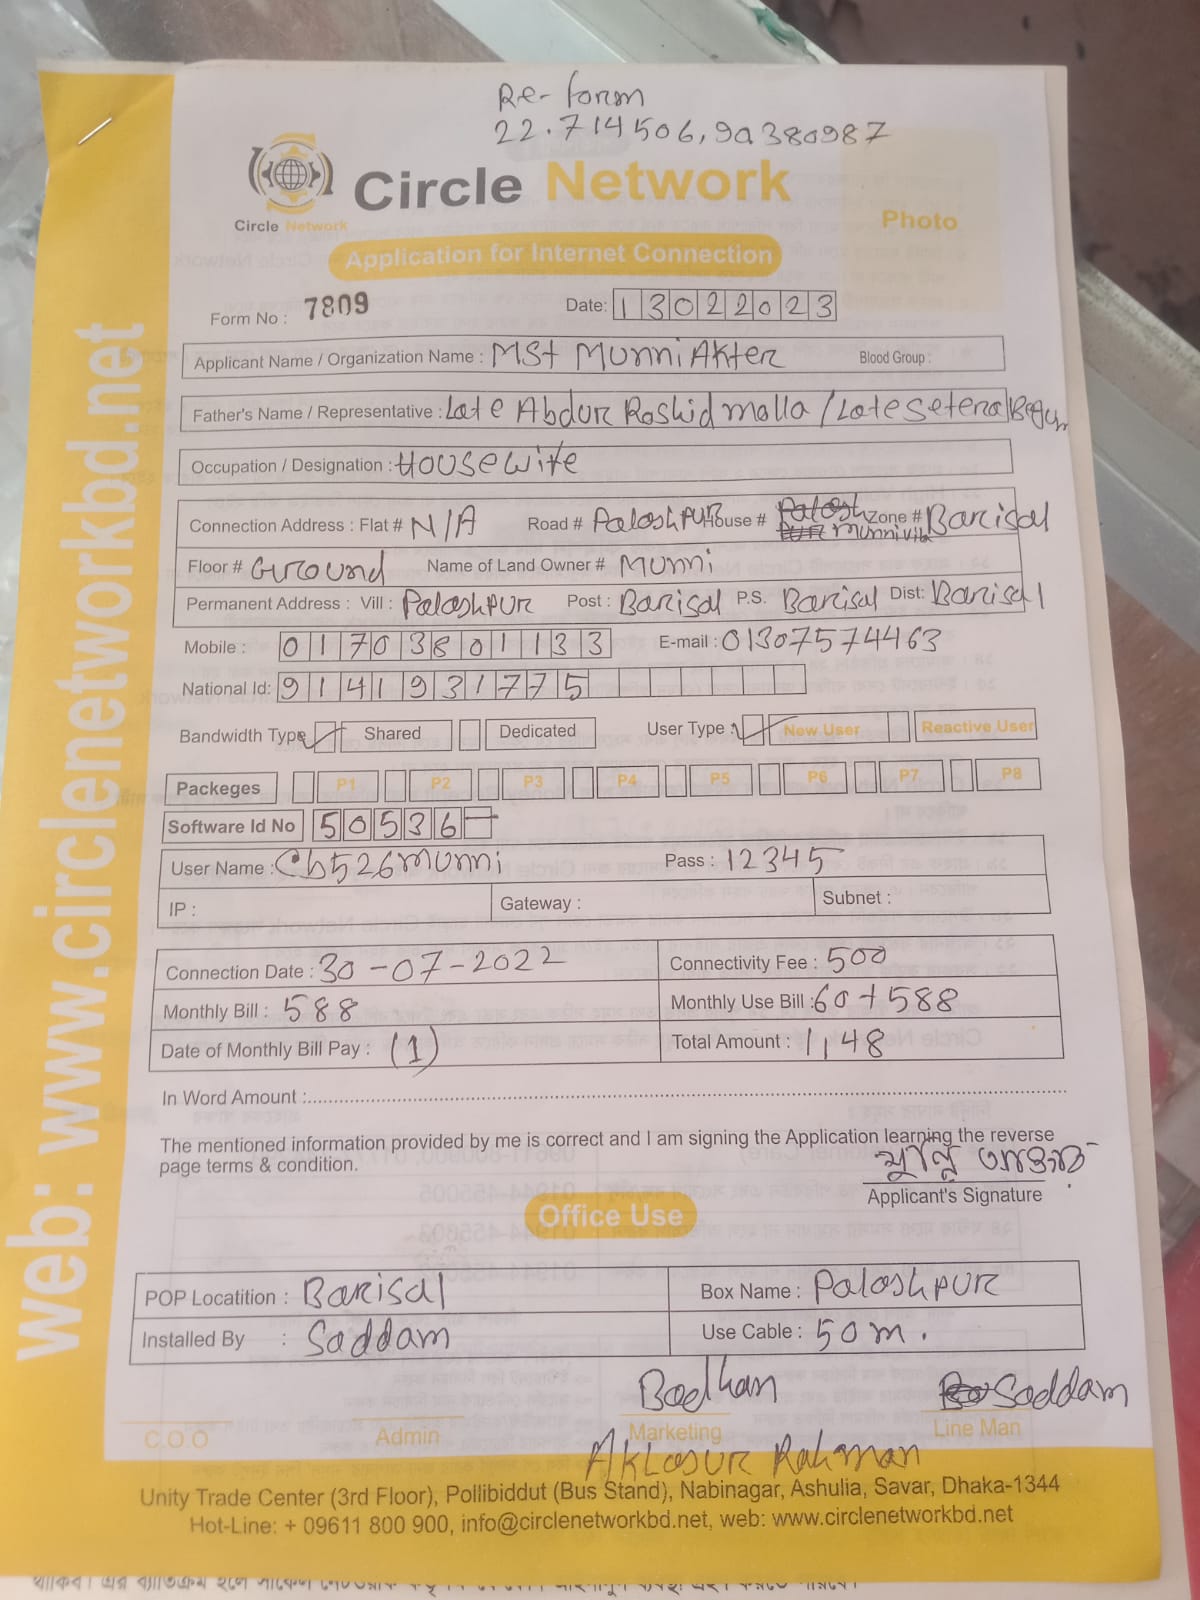 Re-form
22.714506,90380987
Circle Network
Circle Network
Photo
Application for Internet Connection
Form No : 7809
Date: 13022023
Applicant Name / Organization Name : MSt Munni Akter
Blood Group :
Father's Name / Representative : Late Abdur Rashid molla / Late Setera Begum
Occupation / Designation : Housewife
Connection Address : Flat # N/A Road # Palashpur House # Munnivila Zone # Barisal
Floor # Ground Name of Land Owner # Munni
Permanent Address : Vill : Palashpur Post : Barisal P.S. Barisal Dist: Barisal
Mobile : 01703801133 E-mail : 01307574463
National Id: 9141931775
Bandwidth Type Shared Dedicated User Type : New User Reactive User
Packeges P1 P2 P3 P4 P5 P6 P7 P8
Software Id No 50536
User Name : Cb526munni Pass : 12345
IP : Gateway : Subnet :
Connection Date : 30-07-2022 Connectivity Fee : 500
Monthly Bill : 588 Monthly Use Bill : 60+588
Date of Monthly Bill Pay : (1) Total Amount : 1,148
In Word Amount :
The mentioned information provided by me is correct and I am signing the Application learning the reverse
page terms & condition.
মুন্নি আক্তার
Applicant's Signature
Office Use
POP Locatition : Barisal Box Name : Palashpur
Installed By : Saddam Use Cable : 50m.
Bodhan Saddam
C.O.O Admin Marketing Line Man
Aklasur Rahman
Unity Trade Center (3rd Floor), Pollibiddut (Bus Stand), Nabinagar, Ashulia, Savar, Dhaka-1344
Hot-Line: + 09611 800 900, info@circlenetworkbd.net, web: www.circlenetworkbd.net
web: www.circlenetworkbd.net